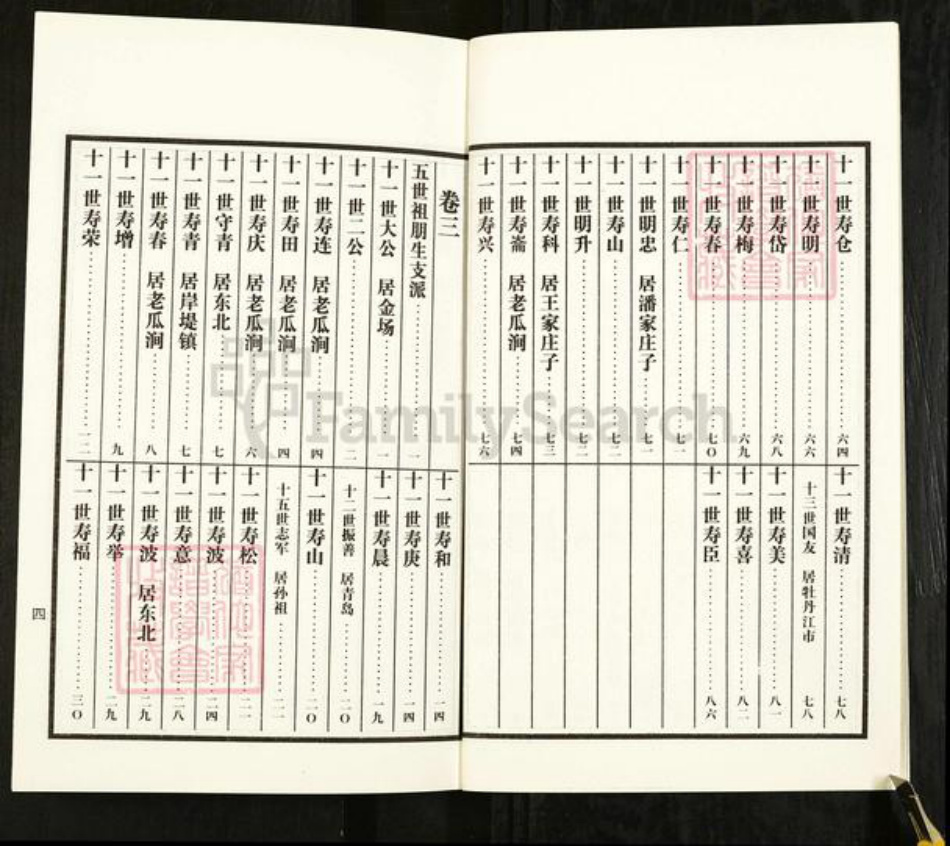 十一世寿仓……六四
十一世寿明……六六
十一世寿岱……六八
十一世寿梅……六九
十一世寿春……七〇
十一世寿仁……七一
十一世明忠 居潘家庄子……七一
十一世寿山……七二
十一世明升……七二
十一世寿科 居王家庄子……七三
十一世寿崙 居老瓜涧……七四
十一世寿兴……七六
十一世寿清……七八
十三世国友 居牡丹江市……七八
十一世寿美……八一
十一世寿喜……八二
十一世寿臣……八六
卷三
五世祖朋生支派……一
十一世大公 居金场……一
十一世二公……二
十一世寿连 居老瓜涧……四
十一世寿田 居老瓜涧……四
十一世寿庆 居老瓜涧……六
十一世守青 居东北……七
十一世寿青 居岸堤镇……七
十一世寿春 居老瓜涧……八
十一世寿增……九
十一世寿荣……一二
十一世寿和……一四
十一世寿庚……一四
十一世寿晨……一九
十二世振善 居青岛……二〇
十一世寿山……二〇
十五世志军 居孙祖……二二
十一世寿松……二二
十一世寿波……二四
十一世寿意……二八
十一世寿波 居东北……二九
十一世寿举……二九
十一世寿福……三〇
四
FamilySearch